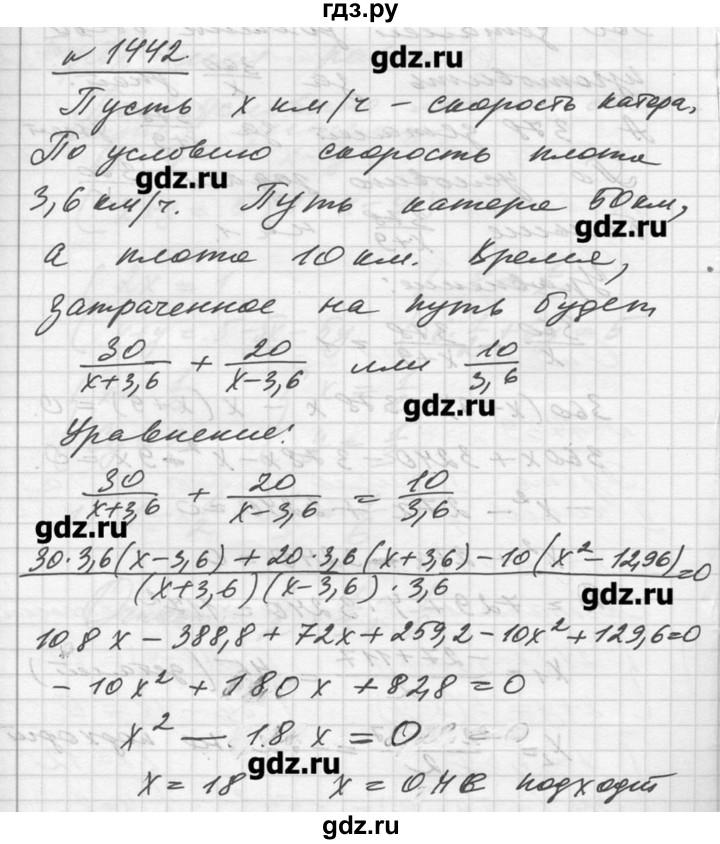 гдз.ру
№ 1442 gdz.ru
Пусть x км/ч – скорость катера,
По условию скорость плота
gdz.ru
3,6 км/ч. Путь катера 50 км,
gdz.ru
а плота 10 км. Время,
затраченное на путь будет
30/(x+3,6) + 20/(x-3,6) или 10/3,6
gdz.ru
Уравнение:
30/(x+3,6) + 20/(x-3,6) = 10/3,6
gdz.ru
(30·3,6(x-3,6)+20·3,6(x+3,6)-10(x²-12,96))/((x+3,6)(x-3,6)·3,6)=0
gdz.ru
108x-388,8+72x+259,2-10x²+129,6=0
-10x²+180x+828=0
x² - 18x = 0
gdz.ru
x=18 x=0 не подходит
gdz.ru